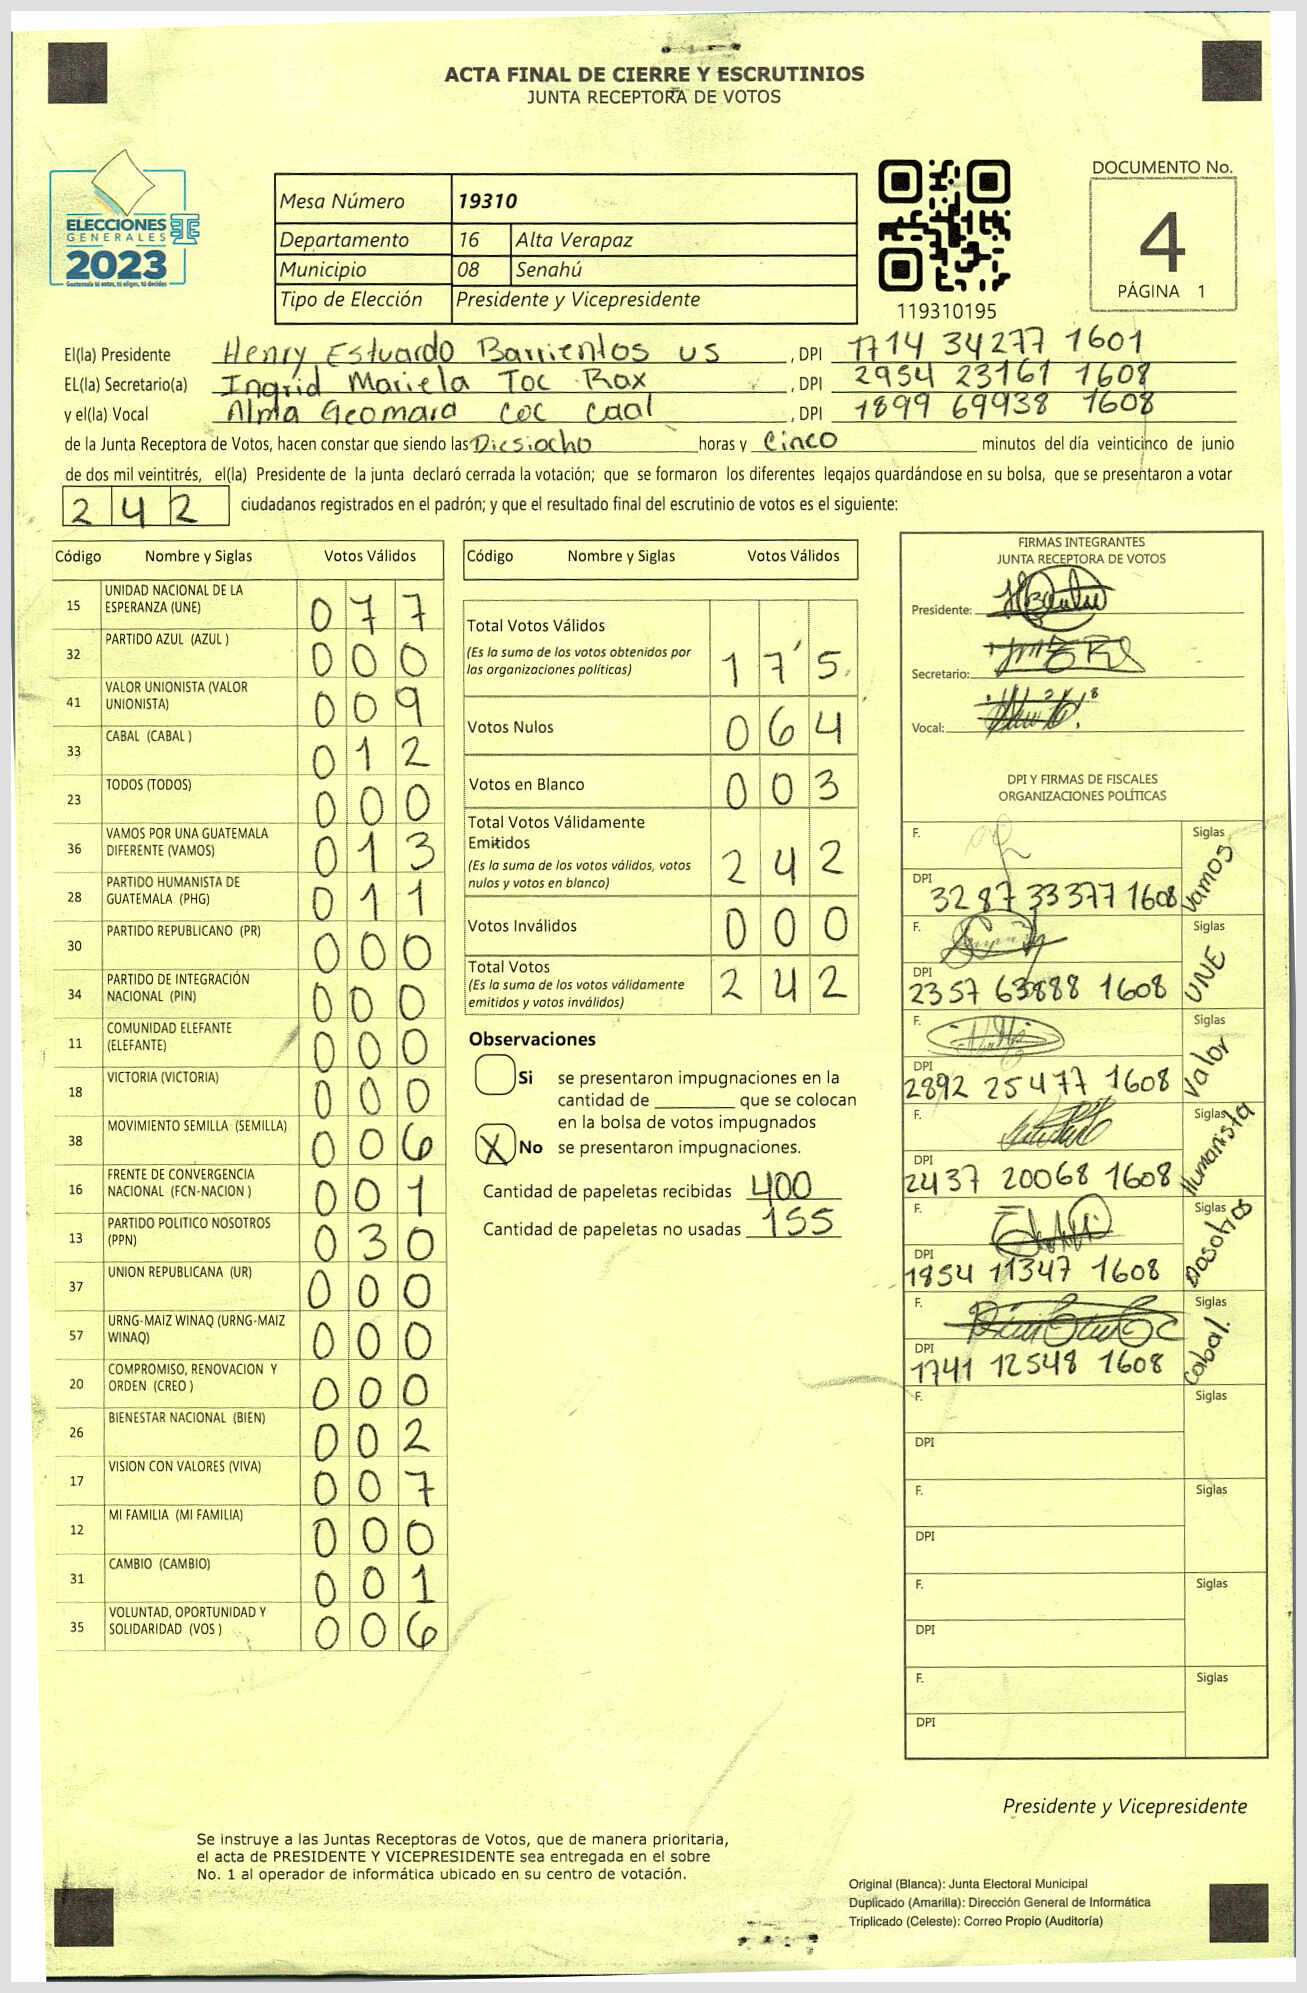 ACTA FINAL DE CIERRE Y ESCRUTINIOS
JUNTA RECEPTORA DE VOTOS
ELECCIONES
GENERALES
2023
Guatemala tú votas, tú eliges, tú decides
Mesa Número 19310
Departamento 16 Alta Verapaz
Municipio 08 Senahú
Tipo de Elección Presidente y Vicepresidente
119310195
DOCUMENTO No.
4
PÁGINA 1
El(la) Presidente Henry Estuardo Barrientos us , DPI 1714 34277 1601
EL(la) Secretario(a) Ingrid Mariela Toc Rax , DPI 2954 23161 1608
y el(la) Vocal Alma Geomara Coc Caal , DPI 1899 69938 1608
de la Junta Receptora de Votos, hacen constar que siendo las Diesiocho horas y Cinco minutos del día veinticinco de junio
de dos mil veintitrés, el(la) Presidente de la junta declaró cerrada la votación; que se formaron los diferentes legajos guardándose en su bolsa, que se presentaron a votar
242 ciudadanos registrados en el padrón; y que el resultado final del escrutinio de votos es el siguiente:
Código Nombre y Siglas Votos Válidos
15 UNIDAD NACIONAL DE LA ESPERANZA (UNE) 077
32 PARTIDO AZUL (AZUL ) 000
41 VALOR UNIONISTA (VALOR UNIONISTA) 009
33 CABAL (CABAL ) 012
23 TODOS (TODOS) 000
36 VAMOS POR UNA GUATEMALA DIFERENTE (VAMOS) 013
28 PARTIDO HUMANISTA DE GUATEMALA (PHG) 011
30 PARTIDO REPUBLICANO (PR) 000
34 PARTIDO DE INTEGRACIÓN NACIONAL (PIN) 000
11 COMUNIDAD ELEFANTE (ELEFANTE) 000
18 VICTORIA (VICTORIA) 000
38 MOVIMIENTO SEMILLA (SEMILLA) 006
16 FRENTE DE CONVERGENCIA NACIONAL (FCN-NACION ) 001
13 PARTIDO POLITICO NOSOTROS (PPN) 030
37 UNION REPUBLICANA (UR) 000
57 URNG-MAIZ WINAQ (URNG-MAIZ WINAQ) 000
20 COMPROMISO, RENOVACION Y ORDEN (CREO ) 000
26 BIENESTAR NACIONAL (BIEN) 002
17 VISION CON VALORES (VIVA) 007
12 MI FAMILIA (MI FAMILIA) 000
31 CAMBIO (CAMBIO) 001
35 VOLUNTAD, OPORTUNIDAD Y SOLIDARIDAD (VOS ) 006
Código Nombre y Siglas Votos Válidos
Total Votos Válidos 175
(Es la suma de los votos obtenidos por
las organizaciones políticas)
Votos Nulos 064
Votos en Blanco 003
Total Votos Válidamente
Emitidos 242
(Es la suma de los votos válidos, votos
nulos y votos en blanco)
Votos Inválidos 000
Total Votos 242
(Es la suma de los votos válidamente
emitidos y votos inválidos)
Observaciones
Si se presentaron impugnaciones en la
cantidad de ________ que se colocan
en la bolsa de votos impugnados
X No se presentaron impugnaciones.
Cantidad de papeletas recibidas 400
Cantidad de papeletas no usadas 155
FIRMAS INTEGRANTES
JUNTA RECEPTORA DE VOTOS
Presidente:
Secretario:
Vocal:
DPI Y FIRMAS DE FISCALES
ORGANIZACIONES POLÍTICAS
F. Siglas Vamos
DPI 3287 33377 1608
F. Siglas UNE
DPI 2357 63888 1608
F. Siglas Valor
DPI 2892 25477 1608
F. Siglas Humanista
DPI 2437 20068 1608
F. Siglas Nosotros
DPI 1854 11347 1608
F. Siglas Cabal.
DPI 1741 12548 1608
F. Siglas
DPI
F. Siglas
DPI
F. Siglas
DPI
F. Siglas
DPI
Presidente y Vicepresidente
Se instruye a las Juntas Receptoras de Votos, que de manera prioritaria,
el acta de PRESIDENTE Y VICEPRESIDENTE sea entregada en el sobre
No. 1 al operador de informática ubicado en su centro de votación.
Original (Blanca): Junta Electoral Municipal
Duplicado (Amarilla): Dirección General de Informática
Triplicado (Celeste): Correo Propio (Auditoría)